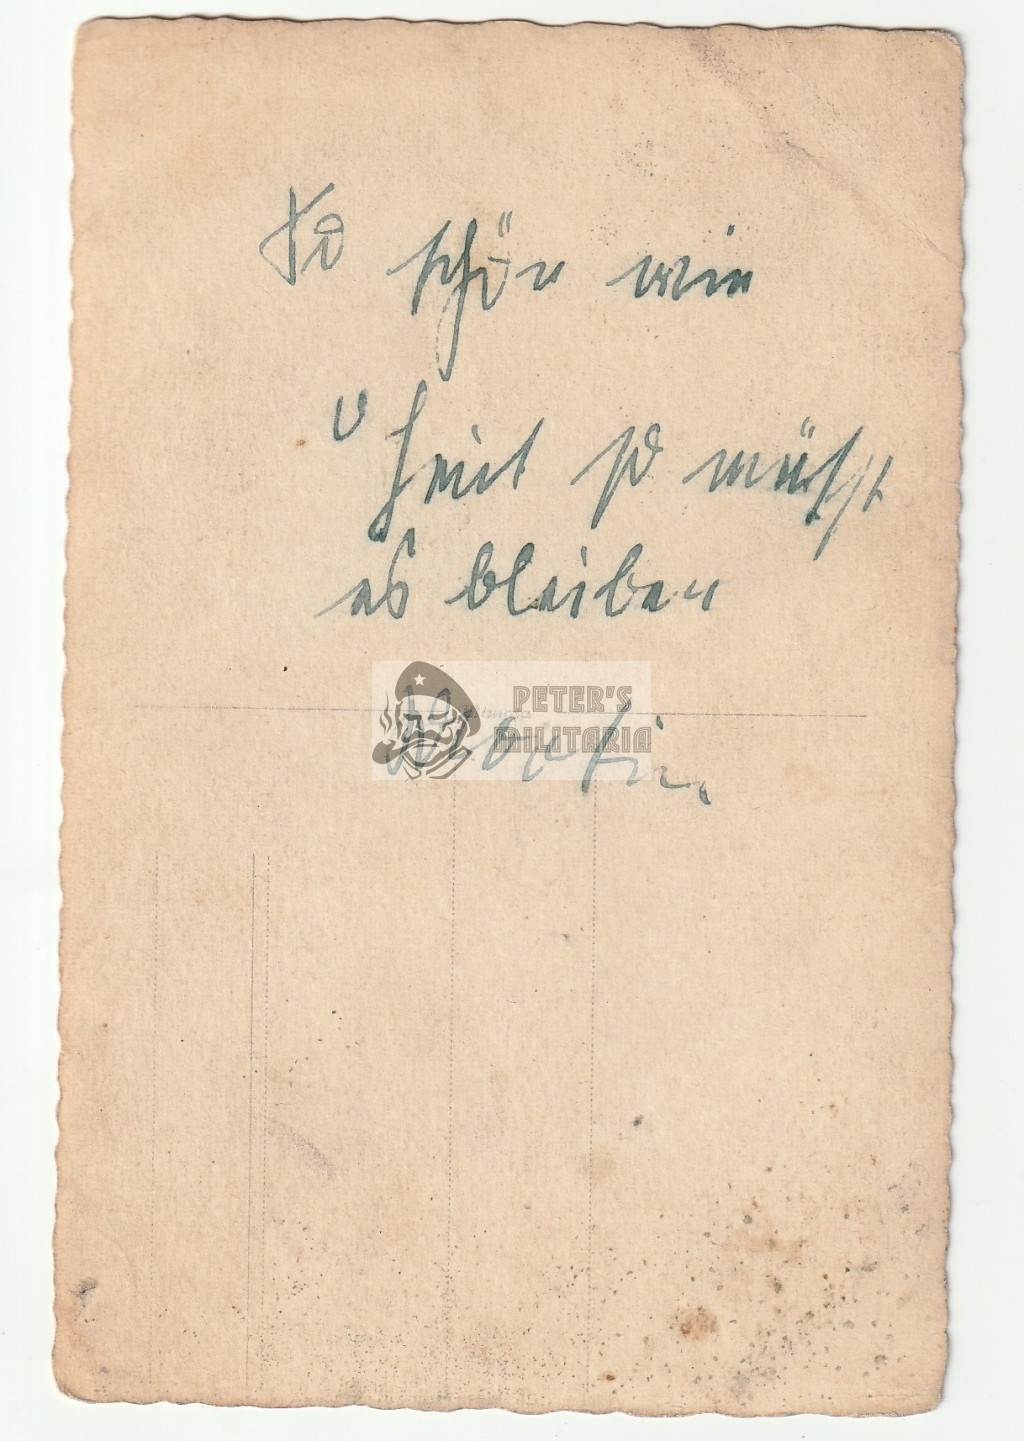 So schön wie
heut so müßt
es bleiben
Martin.
PETER'S
MILITARIA